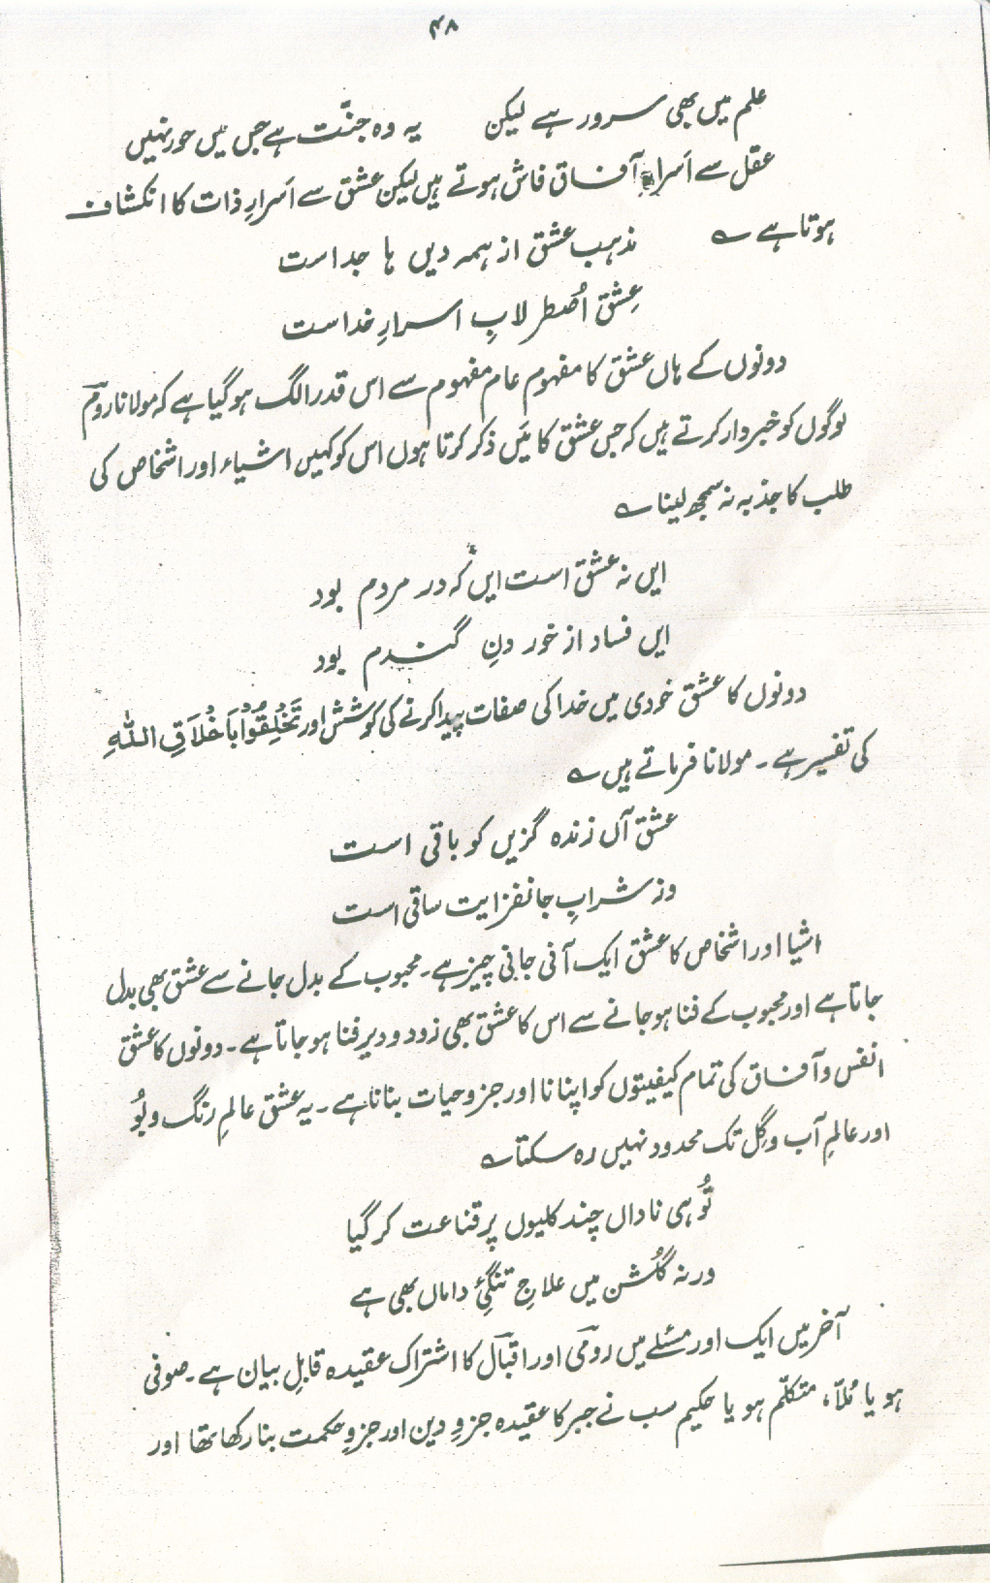 ۴۸
علم میں بھی سرور ہے لیکن یہ وہ جنّت ہے جس میں حور نہیں
عقل سے اَسرارِ آفاق فاش ہوتے ہیں لیکن عشق سے اَسرارِ ذات کا انکشاف
ہوتا ہے ؎ مذہب عشق از ہمہ دیں ہا جداست
عِشق اُصطرلابِ اسرارِ خداست
دونوں کے ہاں عشق کا مفہوم عام مفہوم سے اس قدر الگ ہو گیا ہے کہ مولانا رومؔ
لوگوں کو خبردار کرتے ہیں کہ جس عشق کا مَیں ذکر کرتا ہوں اس کو کہیں اشیاء اور اشخاص کی
طلب کا جذبہ نہ سمجھ لینا ؎
ایں نہ عشق است ایں کہ در مردم بود
ایں فساد از خوردنِ گندم بود
دونوں کا عشق خودی میں خدا کی صفات پیدا کرنے کی کوشش اور تَخَلَّقُوْا بِاَخْلَاقِ اللّٰهِ
کی تفسیر ہے۔ مولانا فرماتے ہیں ؎
عشق آں زندہ گزیں کو باقی است
وز شرابِ جانفزایت ساقی است
اشیا اور اشخاص کا عشق ایک آنی جانی چیز ہے۔ محبوب کے بدل جانے سے عشق بھی بدل
جاتا ہے اور محبوب کے فنا ہو جانے سے اس کا عشق بھی زود و دیر فنا ہو جاتا ہے۔ دونوں کا عشق
انفس و آفاق کی تمام کیفیتوں کو اپنانا اور جزو حیات بنانا ہے۔ یہ عشق عالمِ رنگ و بُو
اور عالمِ آب و گِل تک محدود نہیں رہ سکتا ؎
تُو ہی ناداں چند کلیوں پر قناعت کر گیا
ورنہ گلُشن میں علاجِ تنگیٔ داماں بھی ہے
آخر میں ایک اور مسئلے میں رومیؔ اور اقبالؔ کا اشتراک عقیدہ قابلِ بیان ہے۔ صوفی
ہو یا مُلّا، متکلّم ہو یا حکیم سب نے جبر کا عقیدہ جزوِ دین اور جزوِ حکمت بنا رکھا تھا اور